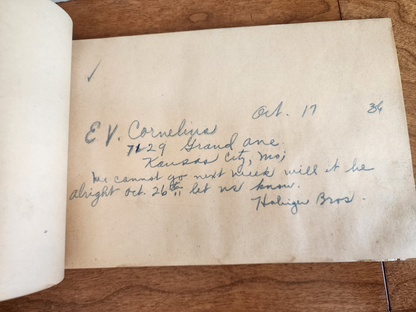 ✓
Oct. 17 36
E V. Cornelius
7129 Grand ave
Kansas City, Mo;
We cannot go next week will it be
alright Oct. 26th, let us know.
Bros.